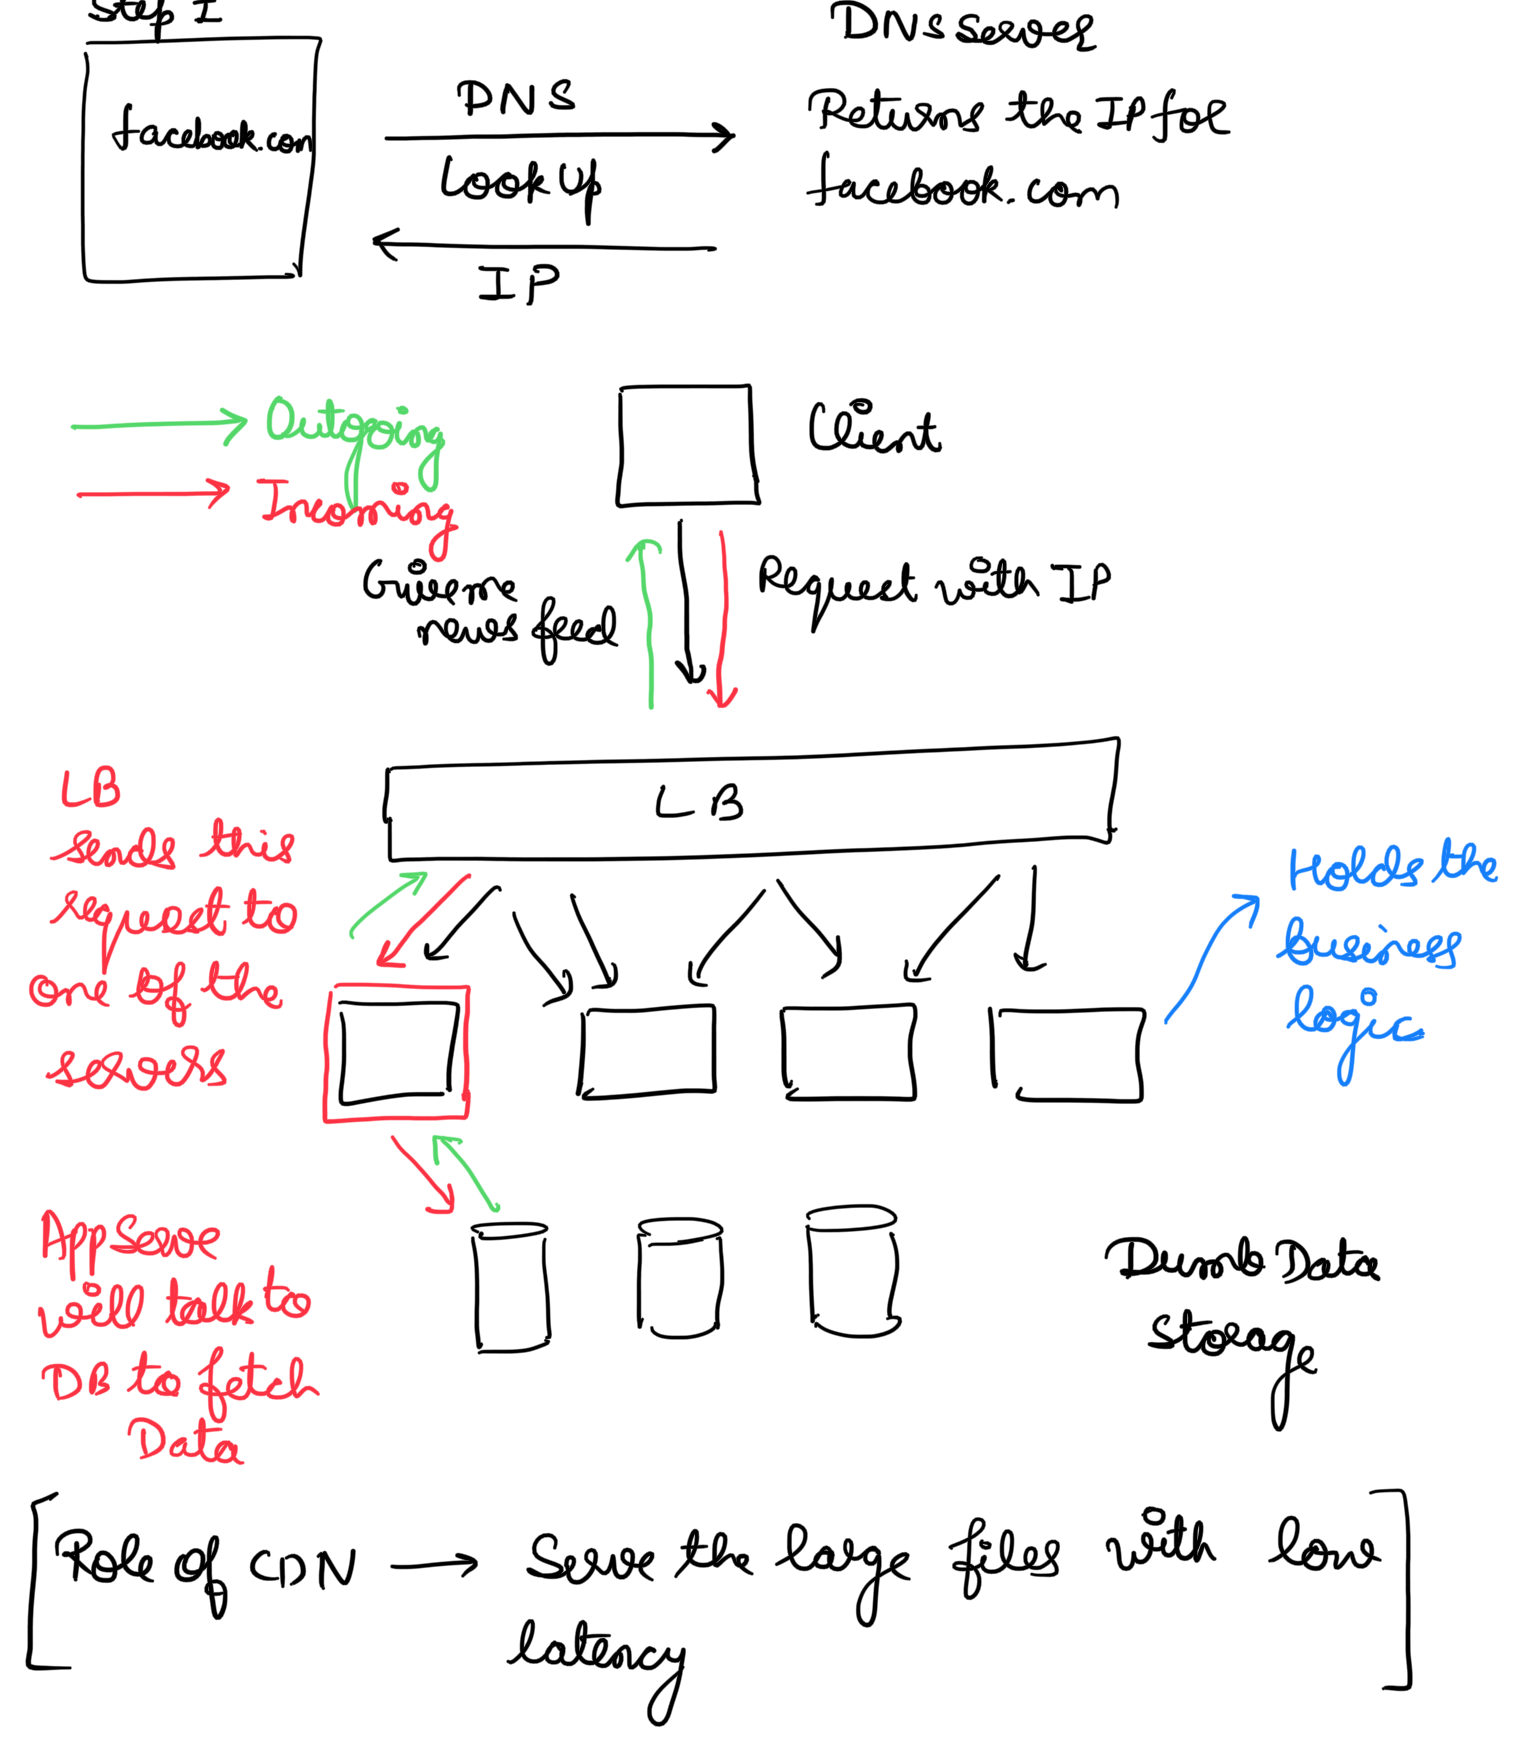 Step I
DNS Server
facebook.com
DNS
Look Up
IP
Returns the IP for
facebook.com
Outgoing
Incoming
Client
Give me
news feed
Request with IP
LB
LB
sends this
request to
one of the
servers
Holds the
business
logic
App Serve
will talk to
DB to fetch
Data
Dumb Data
Storage
Role of CDN → Serve the large files with low
latency